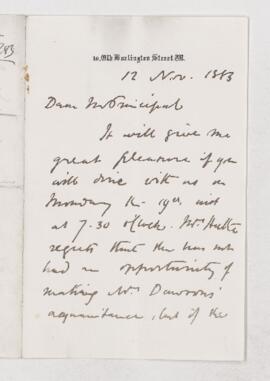 10, Old Burlington Street. W.
12 Nov. 1883
Dear Mr Principal
It will give me
great pleasure if you
will dine with us on
Monday the 19th inst
at 7.30 o'clock. Mrs
regrets that she has not
had an opportunity of
making Mrs Dawson's
acquaintance, but if the